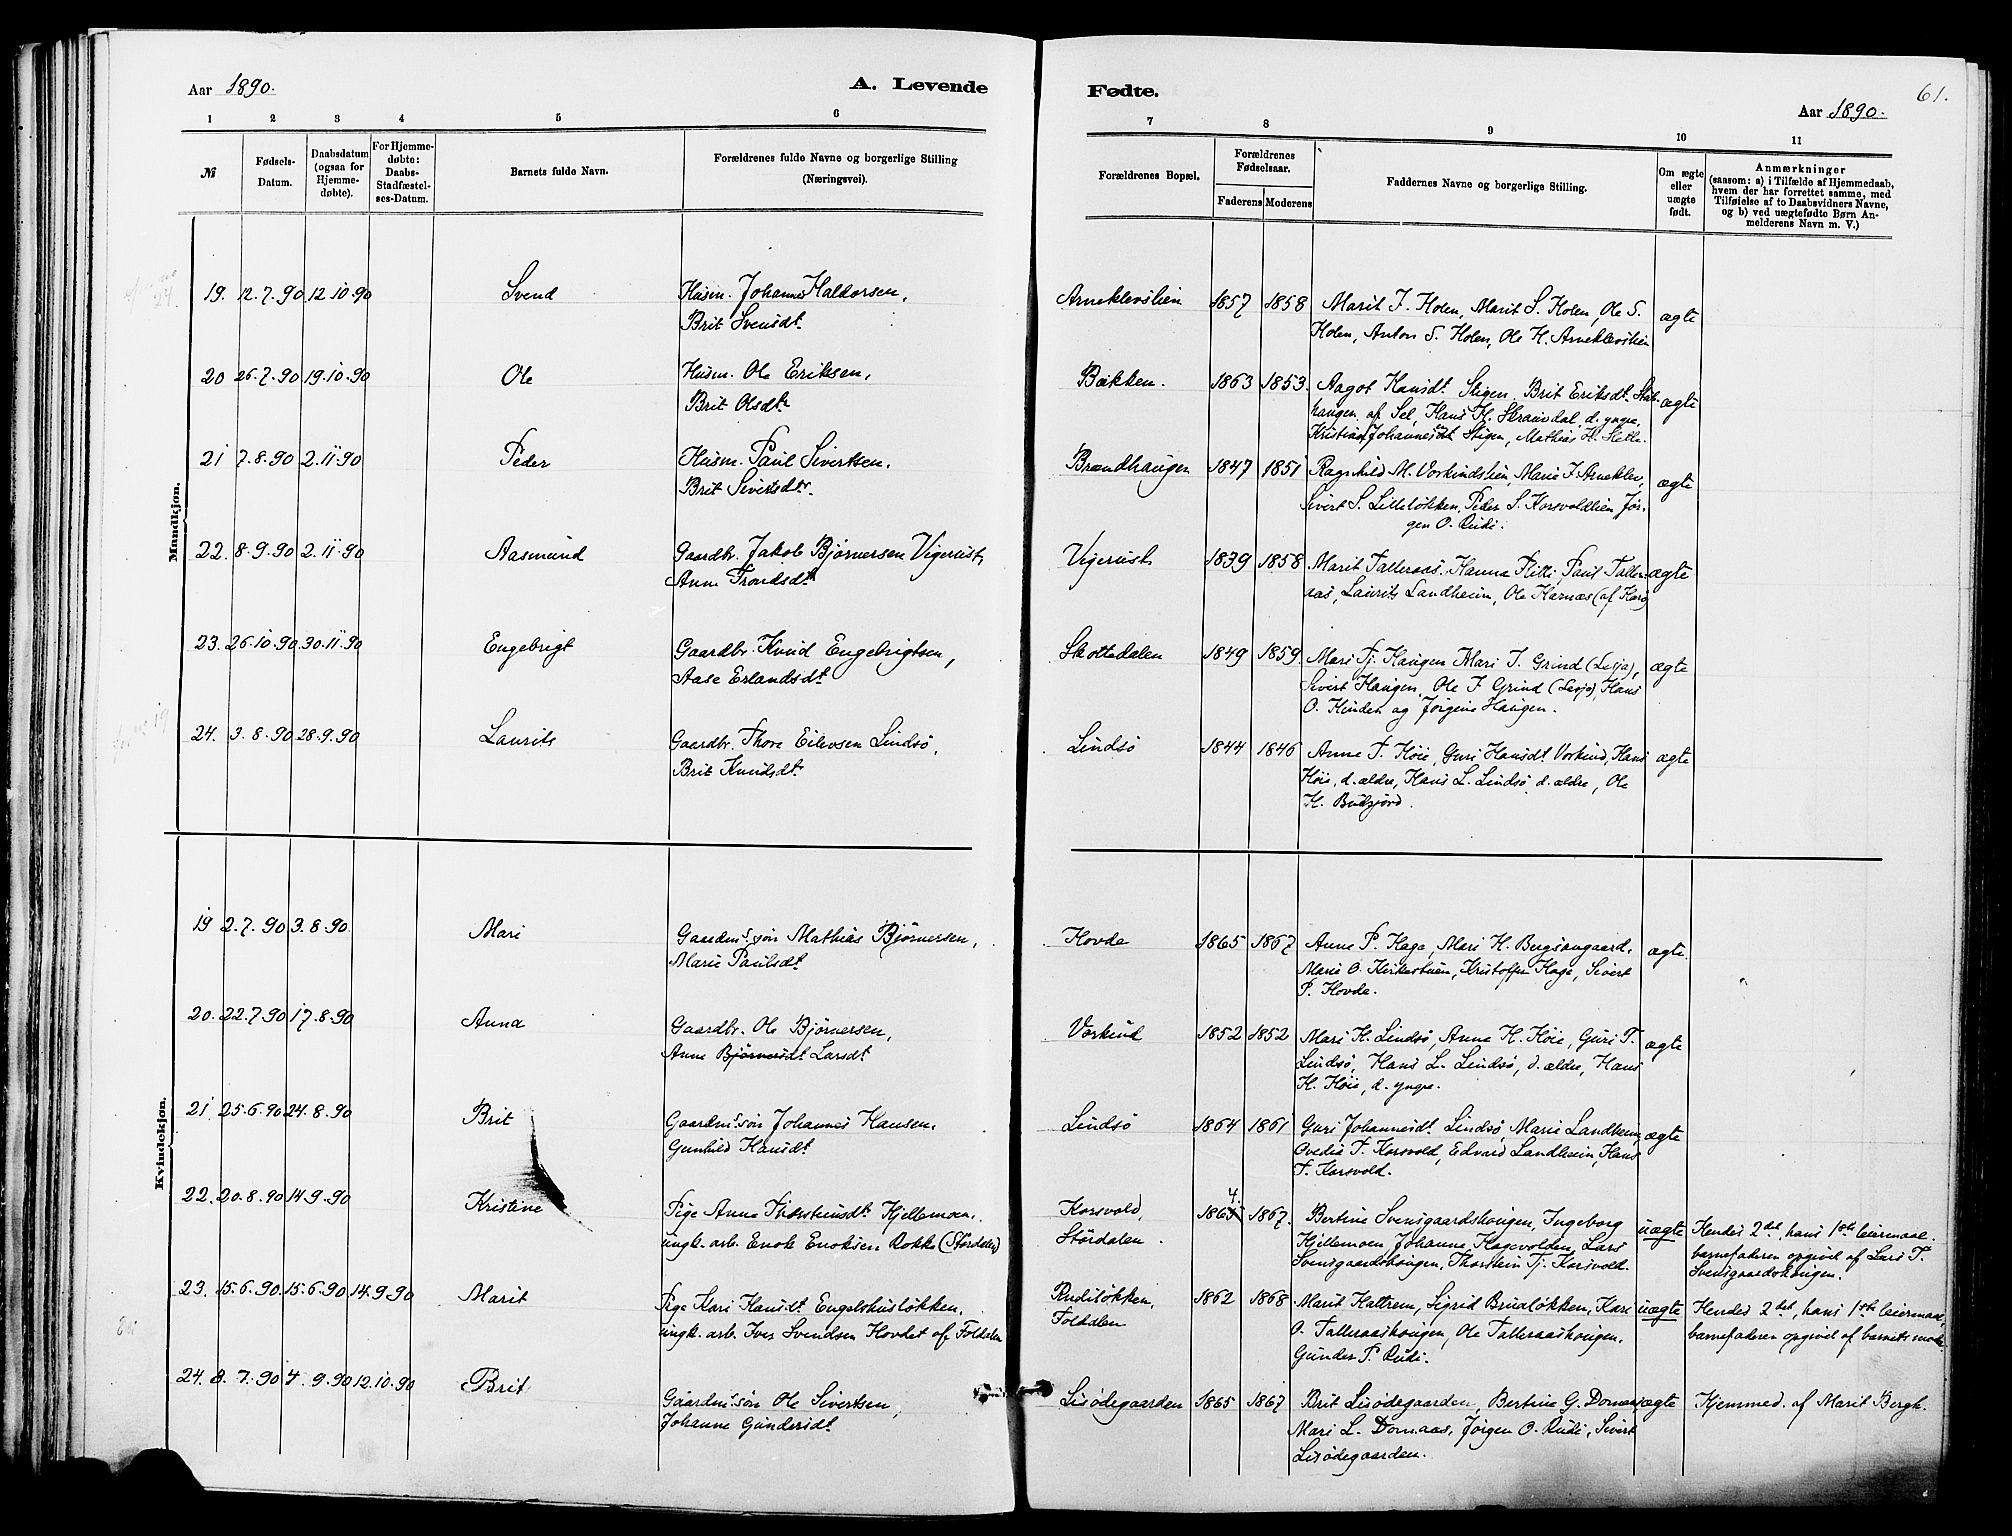 Aar 1890.
A. Levende
1 2 3 4 5 6
№
Fødsels-
Datum.
Daabsdatum
(ogsaa for
Hjemme-
døbte).
For Hjemme-
døbte:
Daabs-
Stadfæstel-
ses-Datum.
Barnets fulde Navn.
Forældrenes fulde Navne og borgerlige Stilling
(Næringsvei).
Mandkjøn.
19. 12.7.90 12.10.90 Svend Husm. Johannes Haldorsen,
Brit Svensdt.
20 26.7.90 19.10.90 Ole Husm. Ole Eriksen,
Brit Olsdtr
21 7.8.90 2.11.90 Peder Husm. Paul Sivertsen,
Brit Sivertsdtr.
22. 8.9.90 2.11.90 Aasmund Gaardbr. Jakob Bjørnersen Vigerust,
Anne Trondsdt.
23. 26.10.90 30.11.90 Engebrigt Gaardbr. Knud Engebrigtsen,
Aase Erlandsdt.
24. 3.8.90 28.9.90 Laurits Gaardbr. Thore Eilevsen Lindsø,
Brit Knudsdt.
Kvindekjøn.
19 2.7.90 3.8.90 Mari Gaardms.søn Mathias Bjørnersen,
Marie Paulsdt.
20. 22.7.90 17.8.90 Anna Gaardbr. Ole Bjørnersen,
Anne Bjørnersdt Larsdt.
21 25.6.90 24.8.90 Brit Gaardms.søn Johannes Hansen,
Gunhild Hansdt.
22. 20.8.90 14.9.90 Kristine Pige Anne Thorsteinsdt. Hjellemoen,
ungk. arb. Enok Enoksen Rokke (Størdalen)
23. 15.6.90 15.6.90 14.9.90 Marit Pige Kari Hansdt. Engelshusløkken,
ungk. arb. Iver Svendsen Hovdet af Foldalen
24. 8.7.90 4.9.90 12.10.90 Brit Gaardms.søn Ole Sivertsen,
Johanne Gundersdt.
Fødte.
61.
Aar 1890.
7 8 9 10 11
Forældrenes Bopæl.
Forældrenes
Fødselsaar.
Faderens Moderens
Faddernes Navne og borgerlige Stilling.
Om ægte
eller
uægte
født.
Anmærkninger
(saasom: a) i Tilfælde af Hjemmedaab,
hvem der har forrettet samme, med
Tilføielse af to Daabsvidners Navne,
og b) ved uægtefødte Børn An-
melderens Navn m. V.)
Arneklevslien 1857 1858 Marit J. Holen, Marit S. Holen, Ole S.
Holen, Anton S. Holen, Ole H. Arneklevslien ægte
Bakken. 1863 1853. Aagot Hansdt. Stigen, Brit Eriksdt.
haugen af Sel, Hans H. Skramdal, d. yngre, ægte
Kristian Johannes Stigen, Mathias H. Sletle.
Brændhaugen 1847 1851 Ragnhild M. Vorkindslien, Marie J. Arneklev,
Sivert S. Lilleløkken, Peder S. Korsvoldlien, Jør- ægte
gen O. Rudi.
Vigerust 1839 1858 Marit Talleraas, Hanna Kitti, Paul Taller-
aas, Laurits Landheim, Ole Harnæs ægte
Skottedalen 1849 1859. Mari Tj. Haugen Mari J. Grind (Lesja),
Sivert Haugen, Ole J. Grind (Lesja), Hans ægte
O. Kinden og Jørgine Haugen.
Lindsø 1844 1846 Anne T. Høie, Guri Hansdt. Vorkind, Hans
Høie, d. ældre, Hans L. Lindsø, d. ældre, Ole ægte
H. Budgjord.
Hovde 1865 1867 Anne P. Hage, Mari H. Bergsaugaard,
Marie O. Kirkestuen, Kristoffer Hage, Sivert ægte
P. Hovde.
Vorkind 1852 1852 Mari H. Lindsø, Anne H. Høie, Guri T.
Lindsø, Hans L. Lindsø, d. ældre, Hans ægte
H. Høie, d. yngre.
Lindsø 1864 1861 Guri Johannesdt. Lindsø, Marie Landheim,
Ovedia T. Korsvold, Edvard Landheim, Hans ægte
T. Korsvold.
Korsvold, 1864 1867. Bertine Svensgaardshaugen, Ingeborg uægte Hendes 2det, hans 1ste leiermaal.
Størdalen. Hjellemoen, Johanne Hagevolden, Lars barnefaderen opgivet af Lars T.
Svensgaardshaugen, Thorstein Tj. Korsvold. Svensgaardshaugen.
Rudiløkken, 1862 1868 Marit Hattrem, Sigrid Brudløkken, Kari uægte Hendes 2det, hans 1ste leiermaal,
Foldalen O. Talleraashaugen, Ole Talleraashaugen, barnefaderen opgivet af barnets moder
Gunder P. Rudi.
Lisødegaarden 1865 1867 Brit Lisødegaarden, Bertine G. Domaas, ægte Hjemmed. af Marit Bergh.
Mari L. Domaas, Jørgen O. Rudi, Sivert
Lisødegaarden.